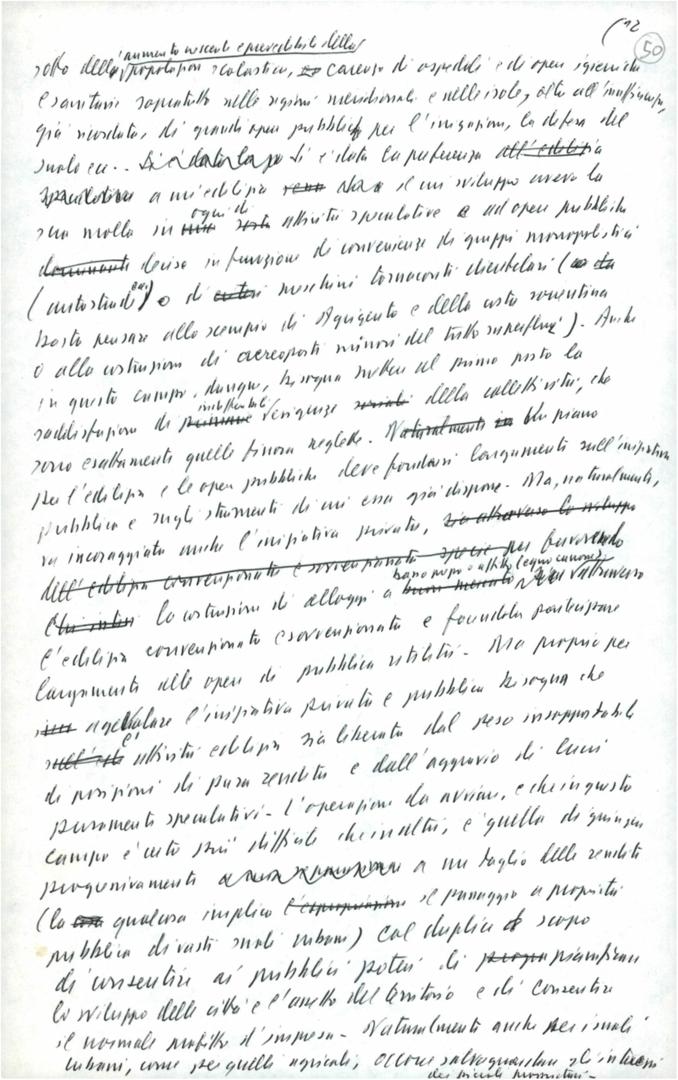 (12
50
aumento crescente e prevedibile della
sotto della popolazione scolastica, carenza di ospedali e di opere igieniche
e sanitarie soprattutto nelle regioni meridionali e nelle isole, oltre all'insufficienza,
già ricordata, di grandi opere pubbliche per l'irrigazione, la difesa del
suolo ecc.. Si è data la pr Si è data la preferenza all'edilizia
speculativa a un'edilizia il cui sviluppo aveva la
ogni di
sua molla in attività speculative e ad opere pubbliche
dominanti decise in funzione di convenienze di gruppi monopolistici
(autostrade) o di meschini tornaconti clientelari (
basta pensare allo scempio di Agrigento e della costa sorrentina
o alla costruzione di aereoporti minori del tutto superflui). Anche
in questo campo, dunque, bisogna mettere al primo posto la
insoddisfatte
soddisfazione di esigenze sociali della collettività, che
sono esattamente quelle finora neglette. Naturalmente in Un piano
per l'edilizia e le opere pubbliche deve fondarsi largamente sull'iniziativa
pubblica e sugli strumenti di cui essa già dispone. Ma, naturalmente,
va incoraggiata anche l'iniziativa privata, sia attraverso lo sviluppo
dell'edilizia convenzionata e sovvenzionata specie per favorendo
basso prezzo o affitto (equo canone)
la costruzione di alloggi a buon mercato attraverso
l'edilizia convenzionata e sovvenzionata e facendola partecipare
largamente alle opere di pubblica utilità. Ma proprio per
agevolare l'iniziativa privata e pubblica bisogna che
l'attività edilizia sia liberata dal peso insopportabile
di posizioni di pura rendita e dall'aggravio di lucri
puramente speculativi. L'operazione da avviare, e che in questo
campo è certo più difficile che in altri, è quella di giungere
progressivamente a un taglio delle rendite
(la cosa qualcosa implica l'espropriazione il passaggio a proprietà
pubblica di vasti suoli urbani) col duplice scopo
di consentire ai pubblici poteri di pianificare
lo sviluppo delle città e l'assetto del territorio e di consentire
il normale profitto d'impresa. Naturalmente anche per i suoli
urbani, come per quelli agricoli, occorre salvaguardare gli interessi
dei piccoli proprietari.